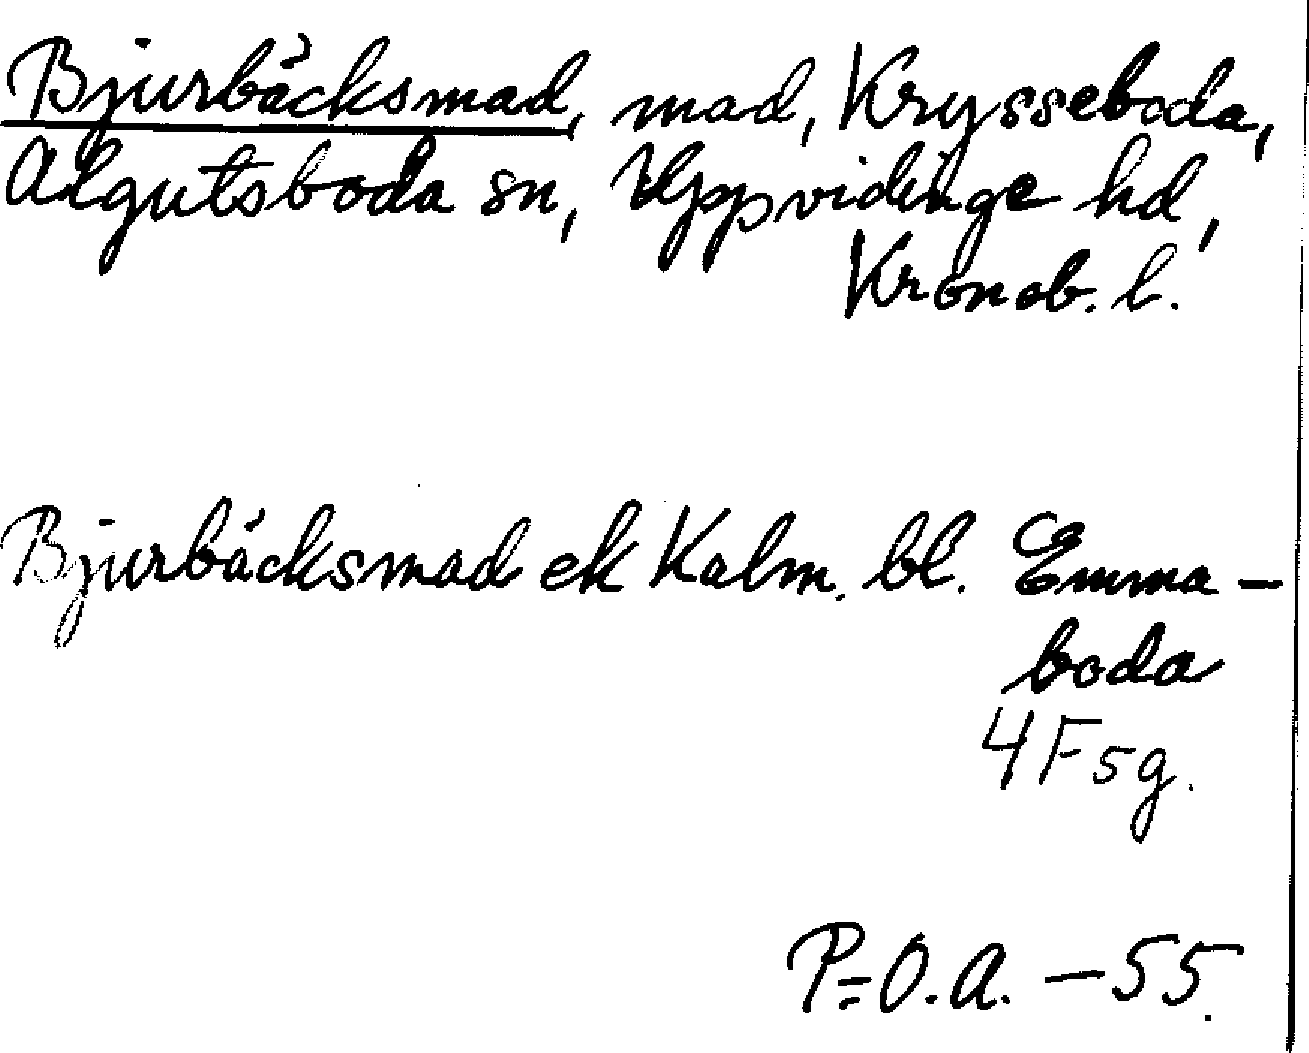 Bjurbäcksmad, mad, Krysseboda,
Algutsboda sn, Uppvidinge hd,
Kronob. l.
Bjurbäcksmad ek Kalm. bl. Emma-
boda
4F5g.
P=O.A. -55.